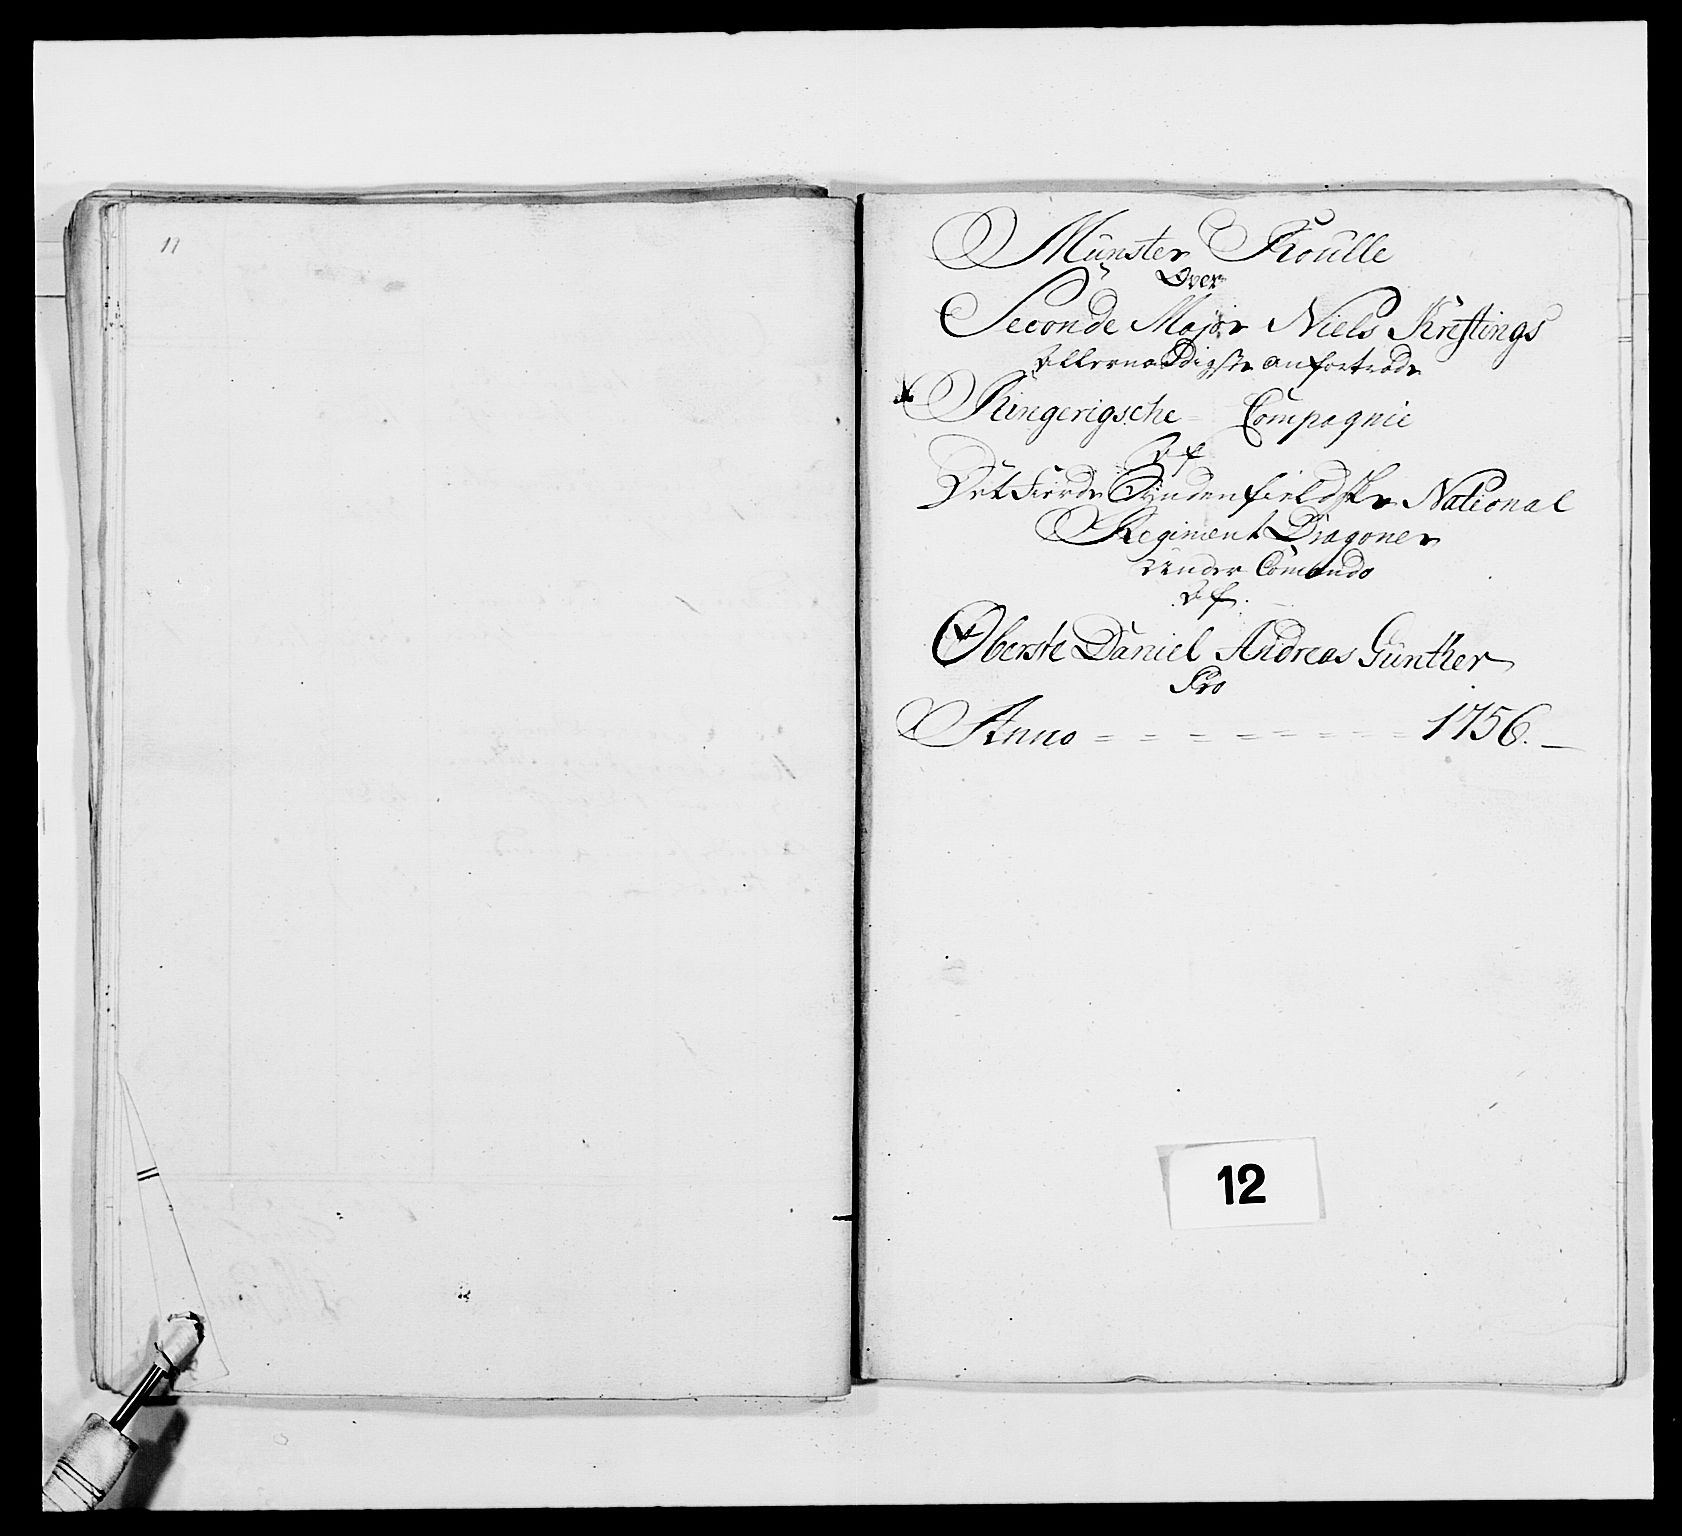 11
Münster Roulle
Over
Seconde Major Niels Kreftings
Allernaadigste anfortrode
Ringerigsche Compagnie
Af
Det Fierde Syndenfieldske National
Regiment Dragoner
Under Comando
Af
Oberste Daniel Andreas Günther
Pro
Anno = = = = = = = = 1756.
12